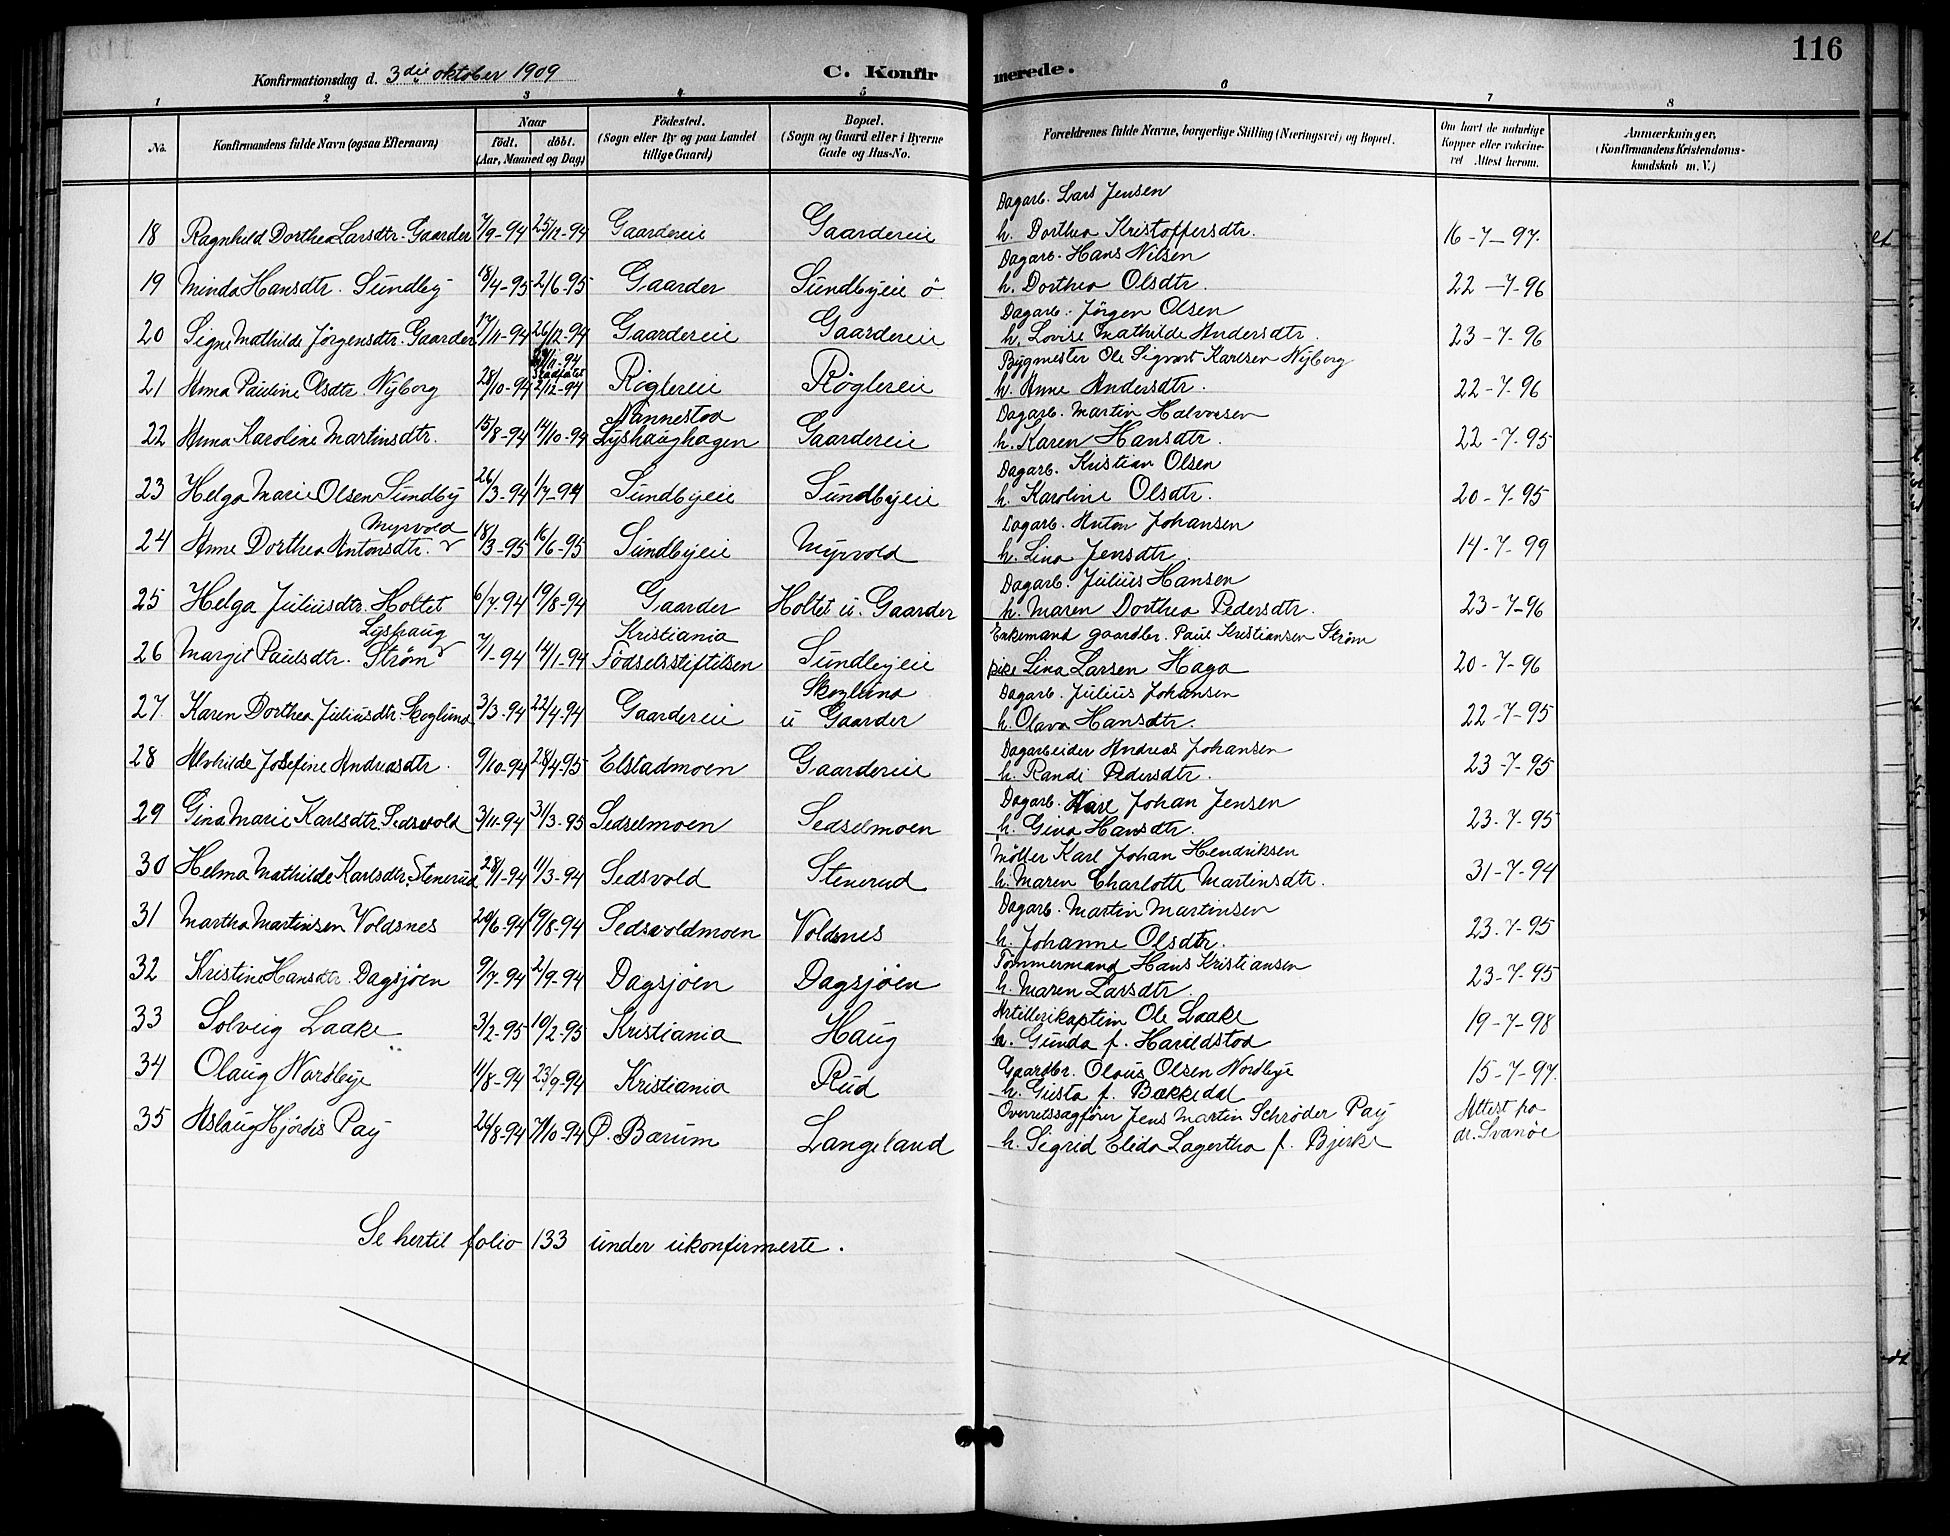 116
Konfirmationsdag d. 3die oktober 1909
C. Konfirmerede.
1 2 3 4 5 6 7 8
No.
Konfirmandens fulde Navn (ogsaa Efternavn)
Naar
födt. döbt.
(Aar, Maaned og Dag)
Födested.
(Sogn eller By og paa Landet
tillige Gaard)
Bopæl.
(Sogn og Gaard eller i Byerne
Gade og Hus-No.
Forældrenes fulde Navne, borgerlige Stilling (Næringsvei) og Bopæl.
Om havt de naturlige
Kopper eller vakcine-
ret Attest herom.
Anmærkninger.
(Konfirmandens Kristendoms-
kundskab m. V.)
Dagarb. Lars Jensen
18 Ragnhild Dorthea Larsdtr. Gaarder 7/9-94 25/12-94 Gaardereie Gaardereie h. Dorthea Kristoffersdtr. 16-7-97.
Dagarb. Hans Nilsen
19 Minda Hansdtr. Sundby 18/4-95 2/6-95 Gaarder Sundbyeie ö. h. Dorthea Olsdtr. 22-7-96
Dagarb. Jörgen Olsen
20 Signe Mathilde Jørgensdtr. Gaarder 17/11-94 26/12-94 Gaardereie Gaardereie h. Lovise Mathilde Andersdtr. 23-7-96
Bygmester Ole Sigvart Karlsen Nyborg
21 Anna Pauline Olsdtr. Nyborg 28/10-94 2/12-94 Røglereie Røglereie h. Anne Andersdtr. 22-7-96
Nannestad Dagarb. Martin Halvorsen
22 Anna Karoline Martinsdtr. 15/8-94 14/10-94 Lyshaughagen Gaardereie h. Karen Hansdtr. 22-7-95
Dagarb. Kristian Olsen
23 Helga Marie Olsen Sundby 26/3-94 1/7-94 Sundbyeie Sundbyeie h. Karoline Olsdtr. 20-7-95
Myrvold Dagarb. Anton Johansen
24 Anne Dorthea Antonsdtr. 18/3-95 16/6-95 Sundbyeie Myrvold h. Lina Jensdtr. 14-7-99
Dagarb. Julius Hansen
25 Helga Juliusdtr. Holtet 6/7-94 19/8-94 Gaarder Holtet u. Gaarder h. Maren Dorthea Pedersdtr. 23-7-96
Lyshaug Kristiania Enkemand gaardbr. Paul Kristiansen Strøm
26 Margit Paulsdtr. Strøm 7/1-94 14/1-94 Födselsstiftelsen Sundbyeie pike Lina Larsen Haga 20-7-96
Skoglund Dagarb. Julius Johansen
27 Karen Dorthea Juliusdtr. Skoglund 3/3-94 22/4-94 Gaardereie u Gaarder h. Olava Hansdtr. 22-7-95
Dagarbeider Andreas Johansen
28 Alvhilde Josefine Andreasdtr. 9/10-94 28/4-95 Elstadmoen Gaardereie h. Randi Pedersdtr. 23-7-95
Dagarb. Karl Johan Jensen
29 Gina Marie Karlsdtr. Sedsvold 3/11-94 31/3-95 Sedselmoen Sedselmoen h. Gina Hansdtr. 23-7-95
Møller Karl Johan Hendriksen
30 Helma Mathilde Karlsdtr. Stenerud 28/1-94 11/3-94 Sedsvold Stenerud h. Maren Charlotte Martinsdtr. 31-7-94
Dagarb. Martin Martinsen
31 Martha Martinsen Voldsnes 29/6-94 19/8-94 Sedsvoldmoen Voldsnes h. Johanne Olsdtr. 23-7-95
Tømmermand Hans Kristiansen
32 Kristine Hansdtr. Dagsjöen 9/7-94 2/9-94 Dagsjöen Dagsjöen h. Maren Larsdtr. 23-7-95
Artillerikaptein Ole Laake
33 Solveig Laake 3/2-95 10/2-95 Kristiania Haug h. Gunda f. Haraldstad 19-7-98
Gaardbr. Olaus Olsen Nordbye
34 Olaug Nordbye 11/8-94 23/9-94 Kristiania Rud h. Gusta f. Bækkedal 15-7-97.
Overretssagfører Jens Martin Schrøder Pay Attest fra
35 Aslaug Hjördis Pay 26/8-94 7/10-94 Ø. Bærum Langeland h. Sigrid Elida Lagertha f. Bjerke dr. Svanöe
Se hertil folio 133 under ukonfirmerte.